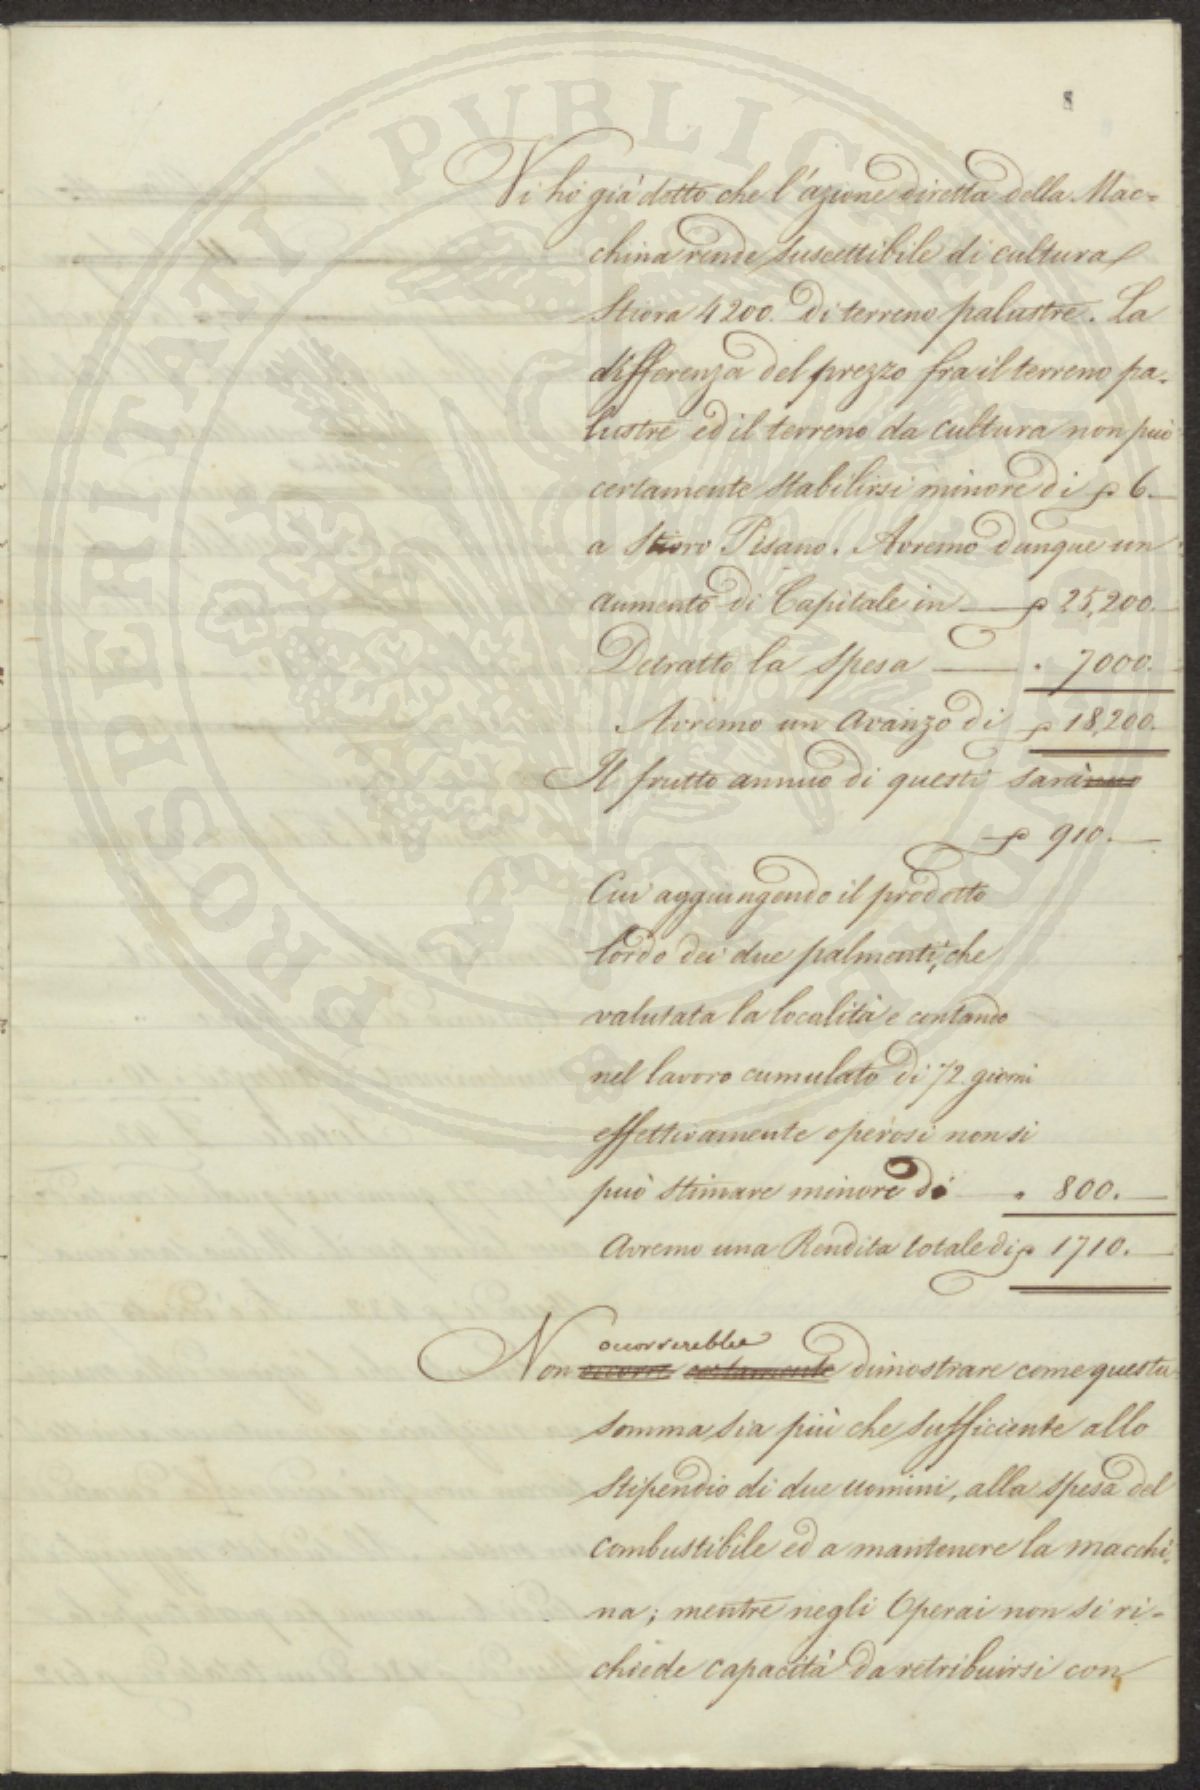 8
Vi hò già detto che l'azione diretta della Mac=
china rende suscettibile di cultura
Stiora 4200. Di terreno palustre. La
differenza del prezzo fra il terreno pa=
lustre ed il terreno da cultura non può
certamente stabilirsi minore di £ 6.
a Stioro Pisano. Avremo dunque un
aumento di Capitale in £ 25,200.
Detratto la spesa " 7000.
Avremo un avanzo di £ 18,200.
Il frutto annuo di questi sarànno
£ 910.
Cui aggiungendo il prodotto
lordo dei due palmenti, che
valutata la località e contando
nel lavoro cumulato di 72. giorni
effettivamente operosi non si
può stimare minore di " 800.
Avremo una Rendita totale di £ 1710.
ocorrerebbe
Non occorre certamente dimostrare come questa
somma sia più che sufficiente allo
Stipendio di due uomini, alla spesa del
combustibile ed a mantenere la macchi=
na; mentre negli Operai non si ri=
chiede capacità da retribuirsi con
PROSPERITATI PUBLICAE